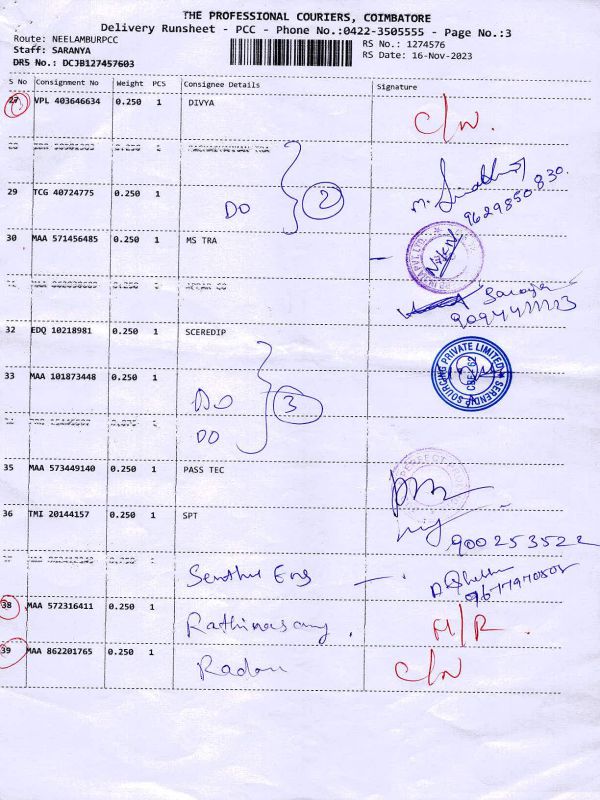 THE PROFESSIONAL COURIERS, COIMBATORE
Delivery Runsheet - PCC - Phone No.:0422-3505555 - Page No.:3
Route: NEELAMBURPCC
Staff: SARANYA
DRS No.: DCJB127457603
RS No.: 1274576
RS Date: 16-Nov-2023
S No Consignment No Weight PCS Consignee Details Signature
27 VPL 403646634 0.250 1 DIVYA C/N.
29 TCG 40724775 0.250 1 DO 2
9629850830.
30 MAA 571456485 0.250 1 MS TRA
Saranya
32 EDQ 10218981 0.250 1 SCEREDIP
SERENDIP SOURCING PRIVATE LIMITED
33 MAA 101873448 0.250 1 DO 3
DO
35 MAA 573449140 0.250 1 PASS TEC
36 TMI 20144157 0.250 1 SPT
900253522
Senthil Eng
38 MAA 572316411 0.250 1 Rathinasamy. H/R.
39 MAA 862201765 0.250 1 C/N